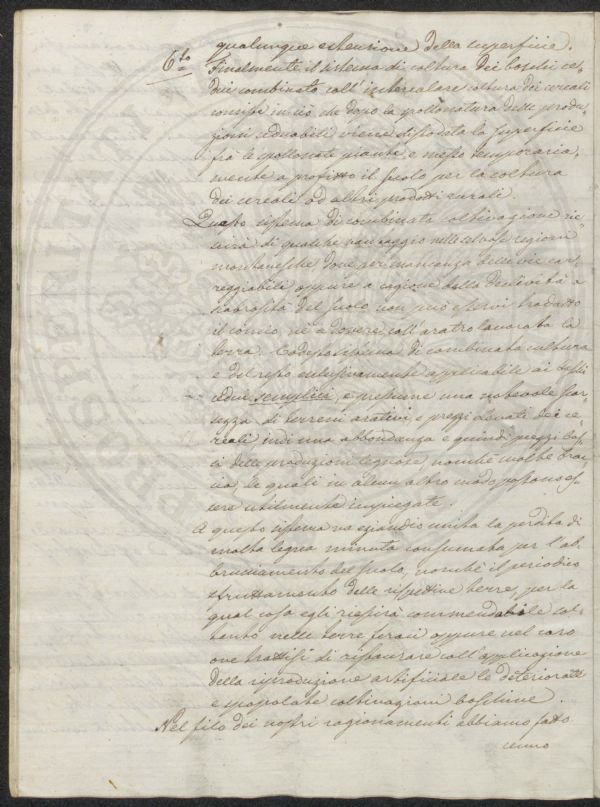 qualunque estensione della superficie.
6to Finalmente il sistema di coltura dei boschi ce-
dui combinata coll' intercalare coltura dei cereali
consiste in ciò che dopo la spollonatura delle produ-
zioni cedua bili viene dissodata la superficie
frà le spollonate piante e messo temporaria-
mente a profitto il suolo per la coltura
dei cereali od altri prodotti rurali.
Questo sistema di combinata coltivazione rie-
scirà di qualche vantaggio nelle selvose regioni
montanesche dove per mancanza delle vie car-
reggiabili oppure a cagione della declività o
scabrosità del suolo non può esservi tradotto
il concio, nè a dovere coll' aratro lavorata la
terra. Codesto sistema di combinata cultura
è del resto esclusivamente applicabile ai cedui
semplici, e presume una notevole scar-
sezza di terreni arativi e prezzi elevati dei ce-
reali indi una abbondanza e quindi prezzi bas-
si delle produzioni legnose, nonchè molte brac-
cia, le quali in alcun altro modo possano es-
sere utilmente impiegate.
A questo sistema va eziandio unita la perdita di
molta legna minuta consumata per l'ab-
bruciamento del suolo, nonchè il periodico
sfruttamento delle rispettive terre, per la
qual cosa egli riescirà commendabile sol-
tanto nelle terre feraci oppure nel caso
ove trattisi di ristaurare coll' applicazione
della riproduzione artificiale le deteriorate
e spopolate coltivazioni boschive.
Nel filo dei nostri ragionamenti abbiamo fatto
cenno